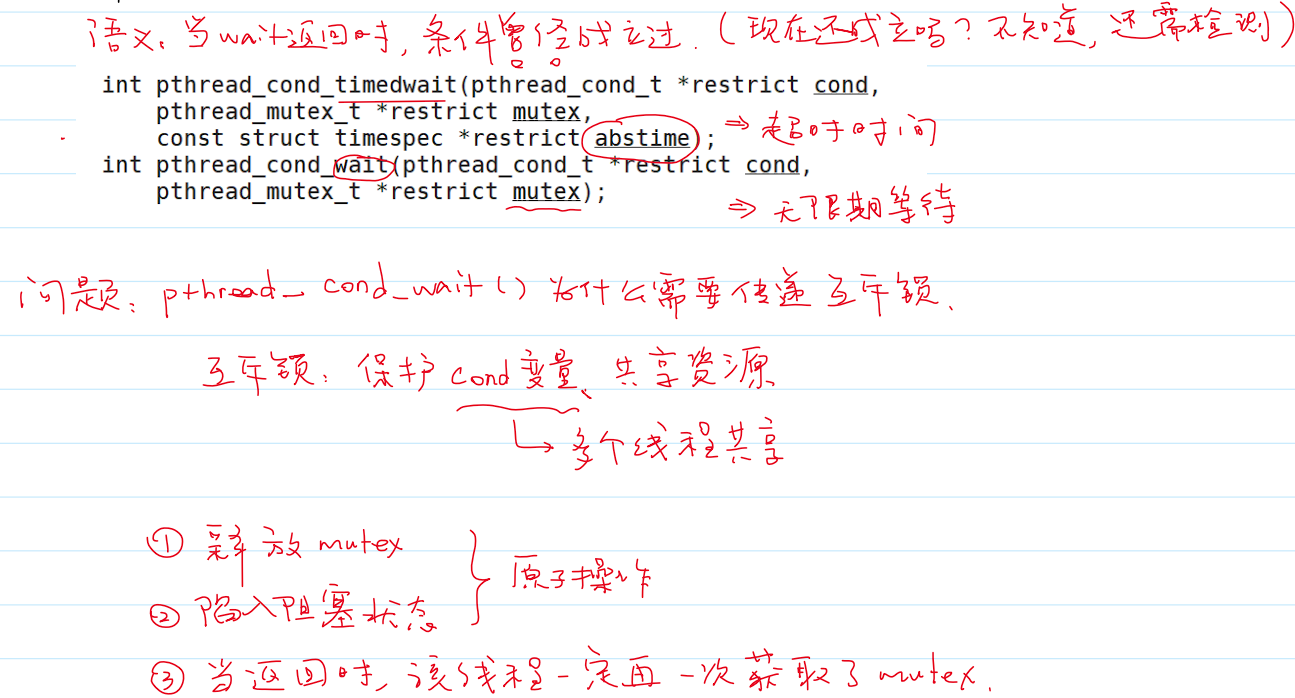 语义：当wait返回时，条件曾经成立过.（现在还成立吗？不知道，还需检测）
int pthread_cond_timedwait(pthread_cond_t *restrict cond,
pthread_mutex_t *restrict mutex,
const struct timespec *restrict abstime); ⇒ 超时时间
int pthread_cond_wait(pthread_cond_t *restrict cond,
pthread_mutex_t *restrict mutex);
⇒ 无限期等待
问题：pthread_cond_wait() 为什么需要传递互斥锁.
互斥锁：保护cond变量、共享资源
↳ 多个线程共享
① 释放 mutex
原子操作
② 陷入阻塞状态
③ 当返回时，该线程一定再一次获取了 mutex.